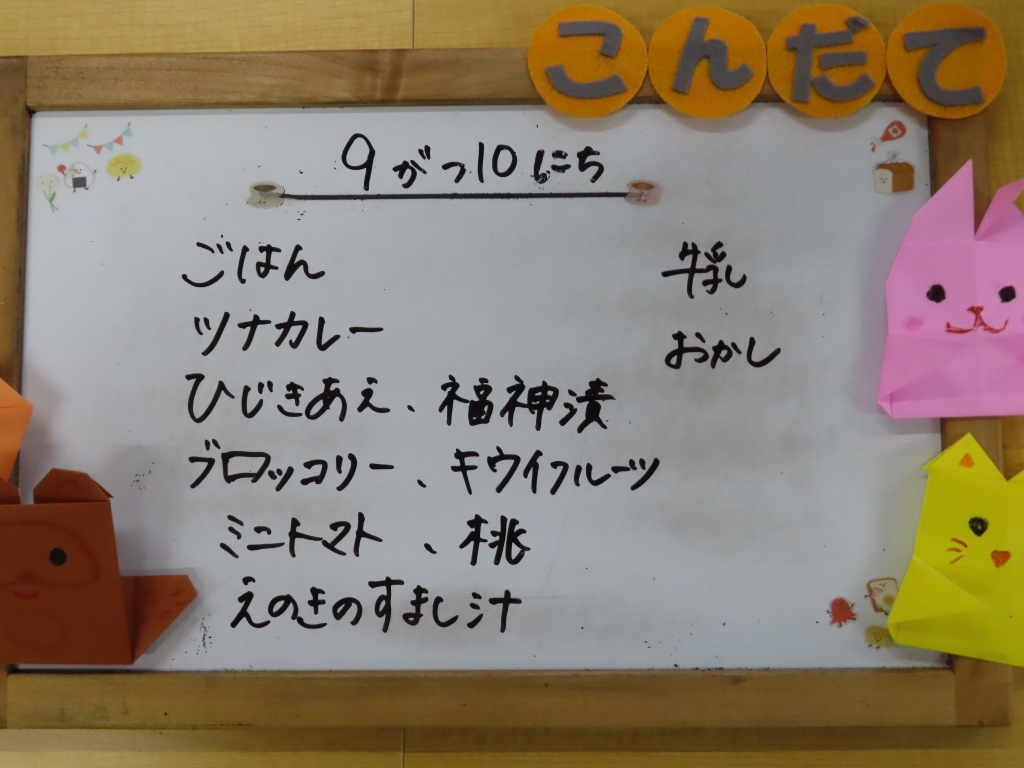 こんだて
9がつ10にち
ごはん
ツナカレー
ひじきあえ、福神漬
ブロッコリー、キウイフルーツ
ミニトマト、桃
えのきのすまし汁
牛乳
おかし